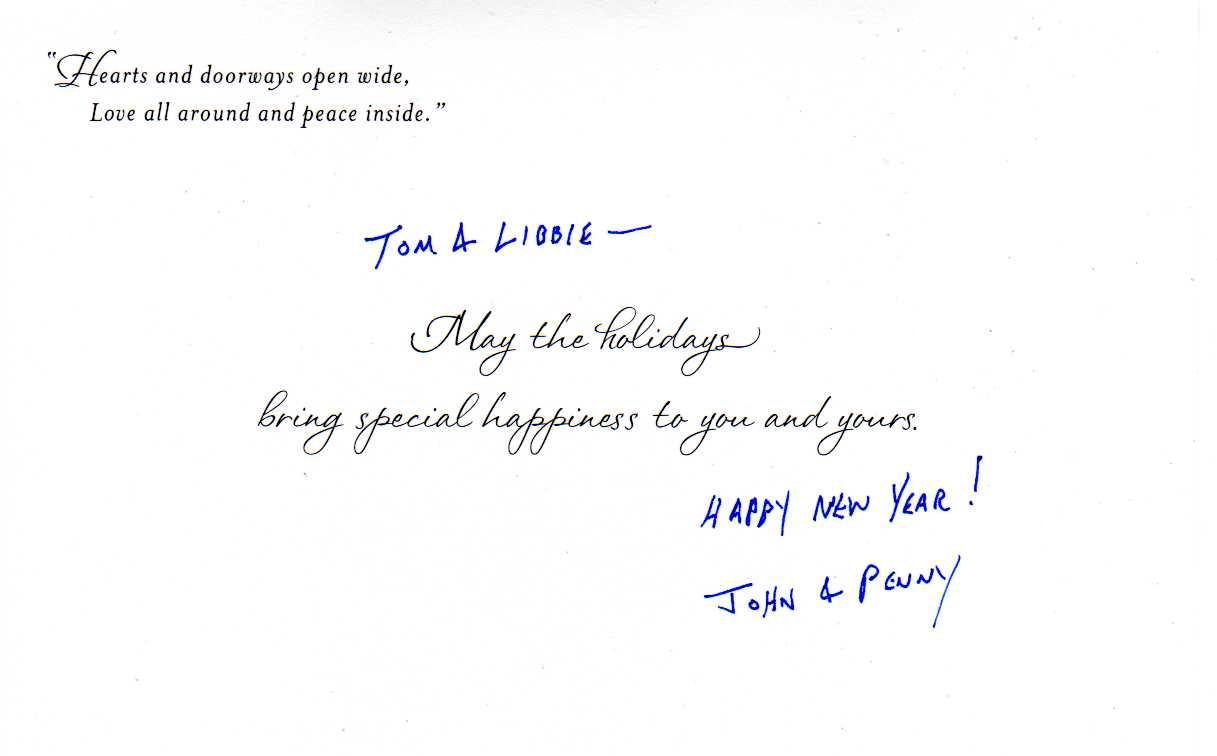 "Hearts and doorways open wide,
Love all around and peace inside."
TOM & LIBBIE —
May the holidays
bring special happiness to you and yours.
HAPPY NEW YEAR!
JOHN & PENNY